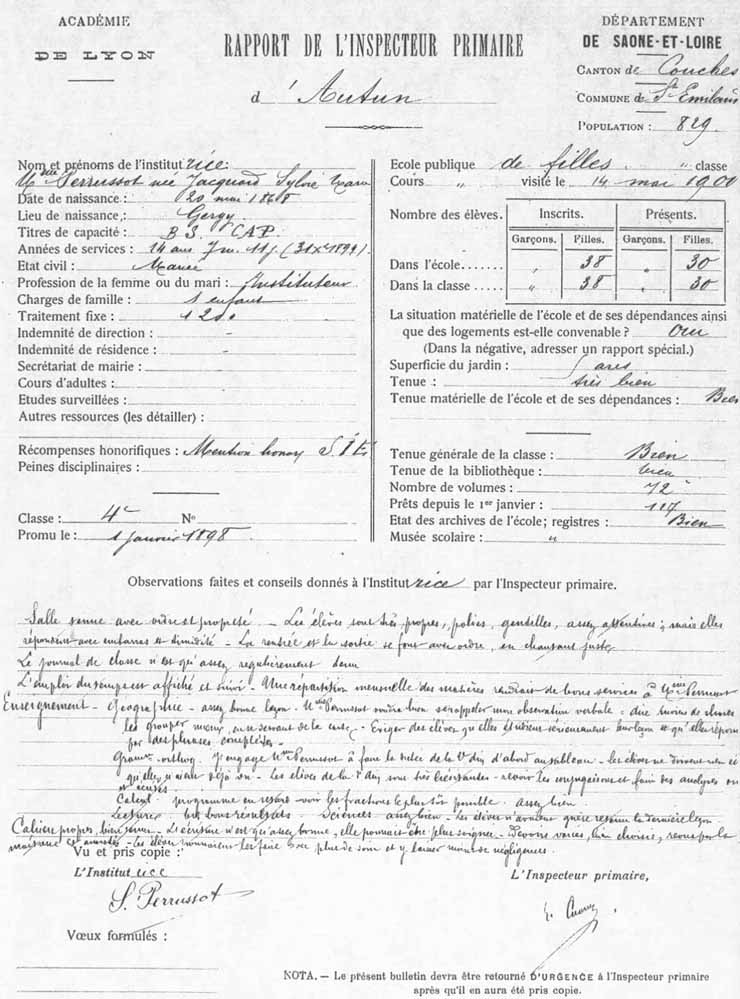 ACADÉMIE
DE LYON
RAPPORT DE L'INSPECTEUR PRIMAIRE
d'Autun
DÉPARTEMENT
DE SAONE-ET-LOIRE
CANTON de Couches
COMMUNE de St Emiland
POPULATION : 829
Nom et prénoms de l'institutrice:
Mme Perrussot née Jacquard Sylvie
Date de naissance : 20 mai 1868
Lieu de naissance : Gergy
Titres de capacité : B S. CAP
Années de services : 14 ans 7m. 11j. (31 Xe 1899)
Etat civil : Mariée
Profession de la femme ou du mari : Instituteur
Charges de famille : 1 enfant
Traitement fixe : 1200
Indemnité de direction : -
Indemnité de résidence : -
Secrétariat de mairie : -
Cours d'adultes : -
Etudes surveillées : -
Autres ressources (les détailler) :
Récompenses honorifiques : Mention honor
Peines disciplinaires :
Classe : 4e No
Promu le : 1 janvier 1898
Ecole publique de filles " classe
Cours " visité le 14 mai 1900
Nombre des élèves. Inscrits. Présents.
Garçons. Filles. Garçons. Filles.
Dans l'école....... " 38 " 30
Dans la classe..... " 38 " 30
La situation matérielle de l'école et de ses dépendances ainsi
que des logements est-elle convenable ? Oui
(Dans la négative, adresser un rapport spécial.)
Superficie du jardin : 5 ares
Tenue : très bien
Tenue matérielle de l'école et de ses dépendances : Bien
Tenue générale de la classe : Bien
Tenue de la bibliothèque : bien
Nombre de volumes : 72
Prêts depuis le 1er janvier : 117
Etat des archives de l'école ; registres : Bien
Musée scolaire : "
Observations faites et conseils donnés à l'Institutrice par l'Inspecteur primaire.
Salle tenue avec ordre et propreté - Les élèves sont très propres, polies, gentilles, assez attentives ; mais elles
répondent avec embarras et timidité - La rentrée et la sortie se font avec ordre, en chantant juste
Le journal de classe n'est qu'assez régulièrement tenu
L'emploi du temps est affiché et suivi - Une répartition mensuelle des matières rendrait de bons services à Mme Perrussot
Enseignement - Géographie - assez bonne leçon - Mme Perrussot voudra bien se rappeler mon observation verbale : dire moins de choses
les grouper mieux, en se servant de la carte - Exiger des élèves qu'elles étudient sérieusement leur leçon et qu'elles répondent
par des phrases complètes -
Gramm - orthog. J'engage Mme Perrussot à faire la dictée de la 2e div d'abord au tableau - les élèves ne doivent rien
qu'elles n'aient déjà vu - Les élèves de la 1e div sont très - revoir les conjugaisons et faire des analyses
Calcul - programme en retard voir les fractions le plus tôt possible - assez bien
Lecture - bons résultats - Sciences assez bien - Les élèves n'avaient guère retenu la dernière leçon
Cahiers propres, bien tenus - L'écriture n'est qu'assez bonne, elle pourrait être plus soignée - Devoirs variés, bien choisis, revus par la
maîtresse et annotés - les élèves pourraient les faire avec plus de soin et y laisser moins de négligences.
Vu et pris copie :
L'Institutrice
S. Perrussot
L'Inspecteur primaire,
Vœux formulés :
NOTA. — Le présent bulletin devra être retourné D'URGENCE à l'Inspecteur primaire
après qu'il en aura été pris copie.